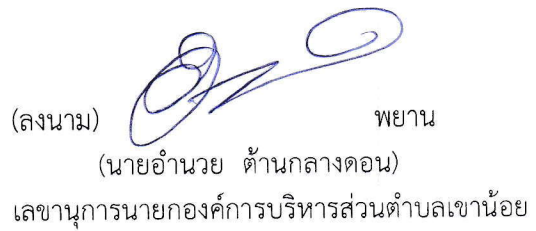 (ลงนาม) พยาน
(นายอำนวย ด้านกลางดอน)
เลขานุการนายกองค์การบริหารส่วนตำบลเขาน้อย